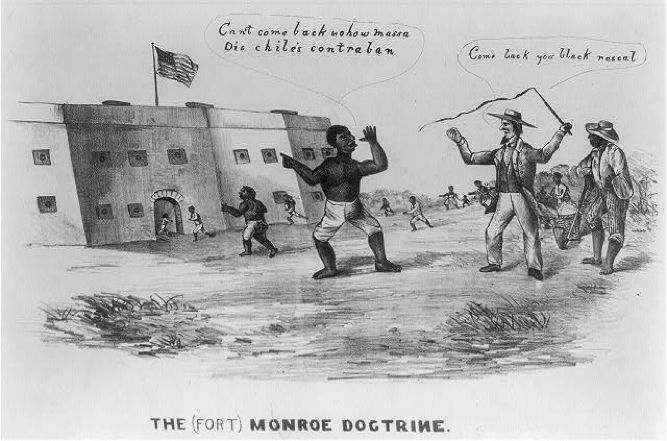 Can't come back nohow massa
Dis chile's contraban
Come back you black rascal
THE (FORT) MONROE DOCTRINE.